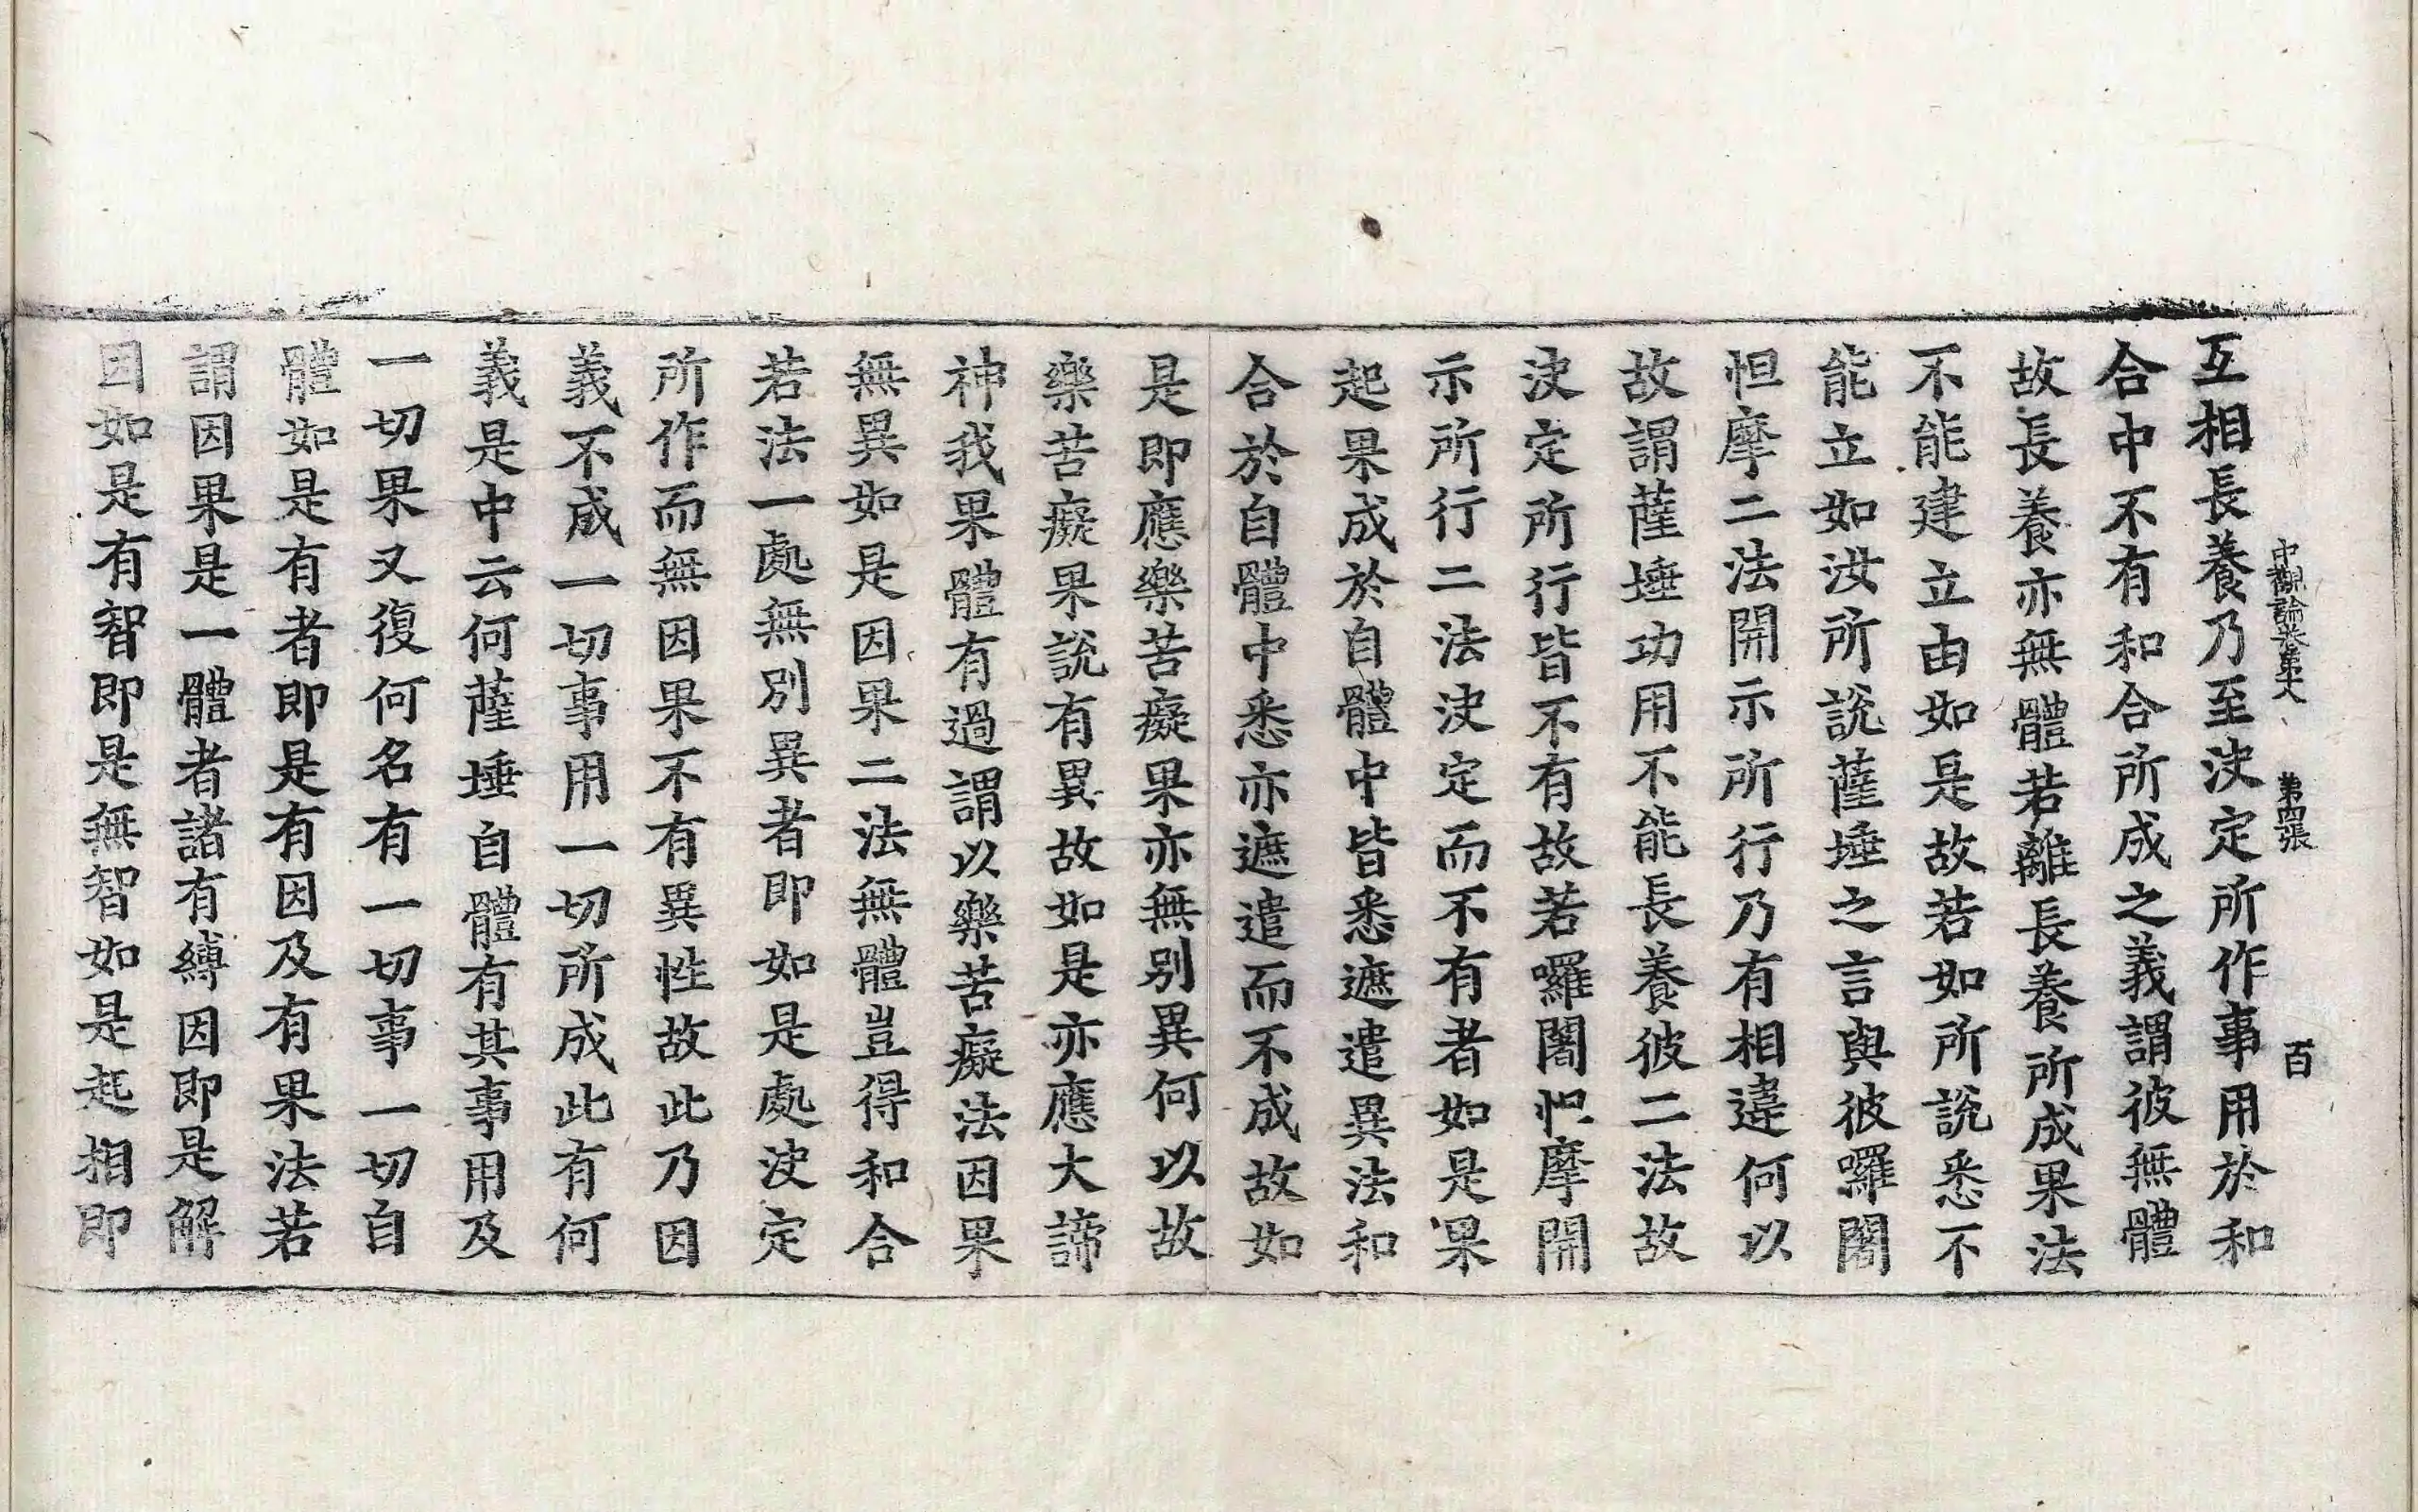 中觀論卷第六 第四張 百
互相長養乃至決定所作事用於和
合中不有和合所成之義謂彼無體
故長養亦無體若離長養所成果法
不能建立由如是故若如所說悉不
能立如汝所說薩埵之言與彼囉闍
怛摩二法開示所行乃有相違何以
故謂薩埵功用不能長養彼二法故
決定所行皆不有故若囉闍怛摩開
示所行二法決定而不有者如是果
起果成於自體中皆悉遮遣異法和
合於自體中悉亦遮遣而不成故如
是即應樂苦癡果亦無別異何以故
樂苦癡果說有異故如是亦應大諦
神我果體有過謂以樂苦癡法因果
無異如是因果二法無體豈得和合
若法一處無別異者即如是處決定
所作而無因果不有異性故此乃因
義不成一切事用一切所成此有何
義是中云何薩埵自體有其事用及
一切果又復何名有一切事一切自
體如是有者即是有因及有果法若
謂因果是一體者諸有縛因即是解
因如是有智即是無智如是起相即